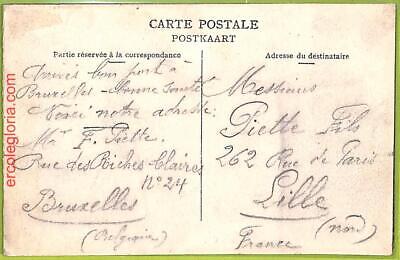 CARTE POSTALE
POSTKAART
Partie réservée à la correspondance
Adresse du destinataire
bon port à
Bruxelles bonne santé
Voici notre adresse:
Mr F. Piette
Rue des Riches Claires
No 24
Bruxelles
(Belgique)
Messieurs
Piette Fils
262 Rue de Paris
Lille
(Nord)
France
ercolegloria.com